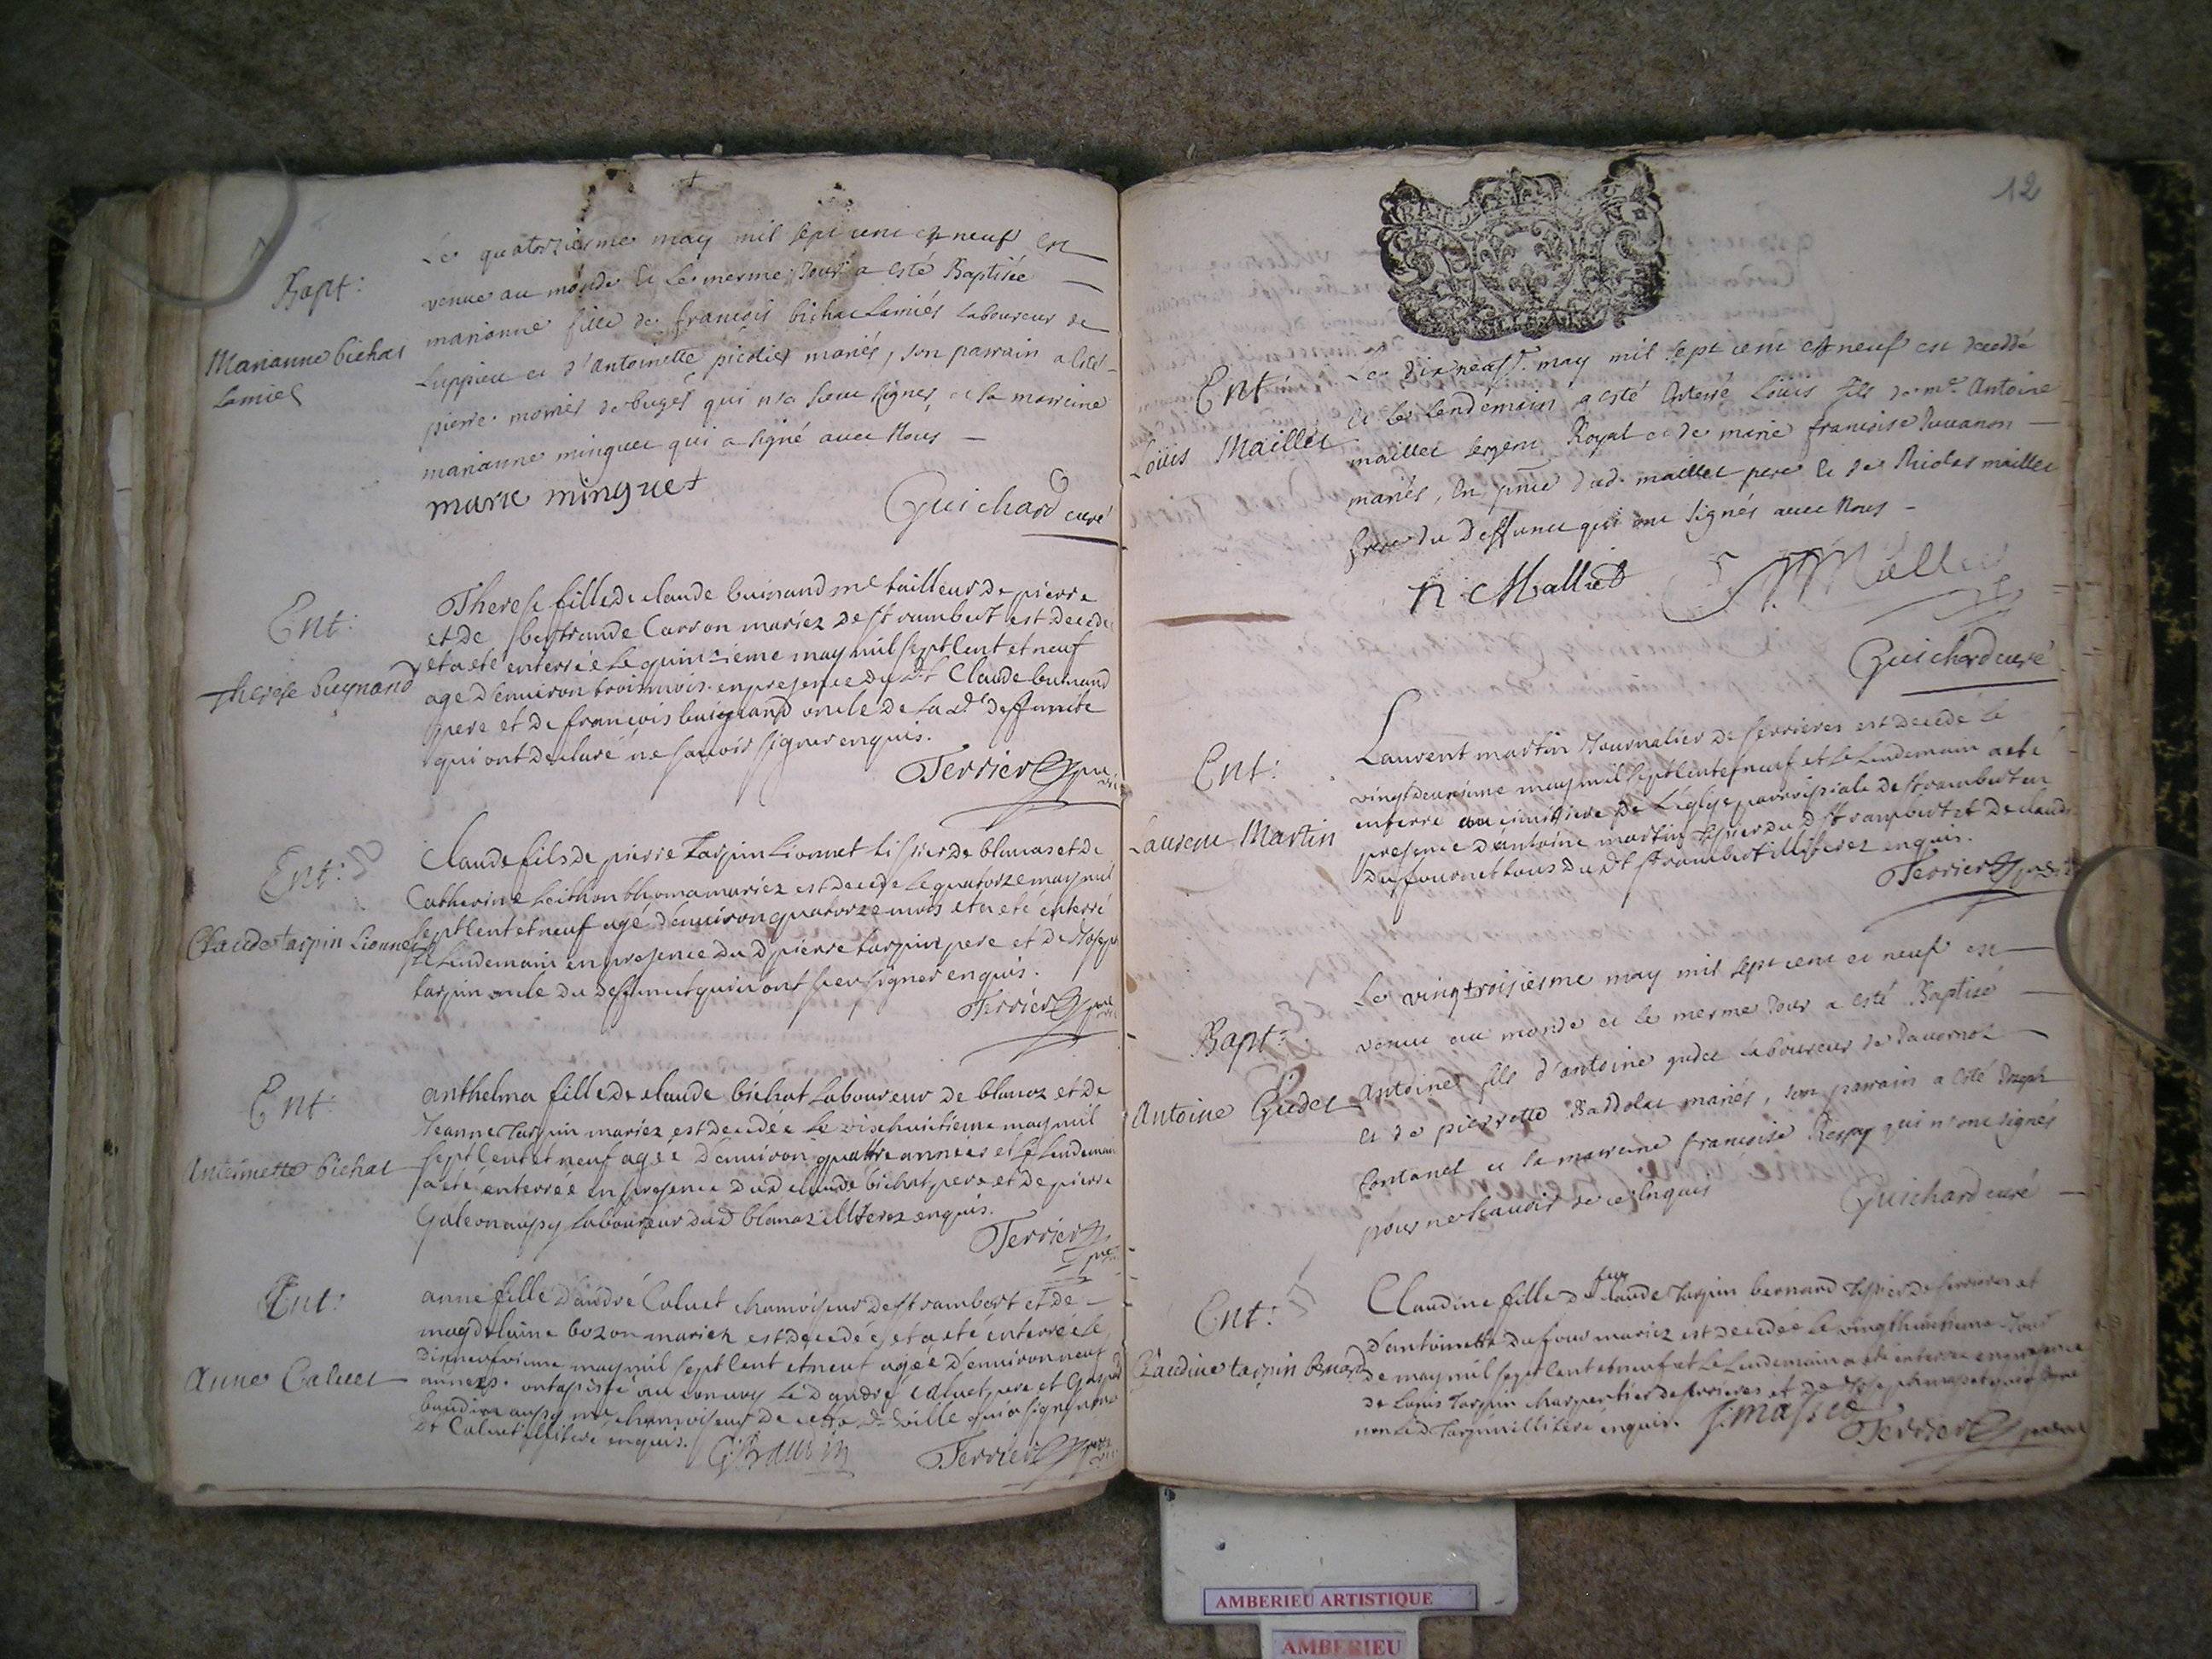 Bapt:
Marianne bichat
Lamiel
Le quatorziesme may mil sept cent et neuf est
venue au monde et le mesme jour a esté Baptisée
marianne fille de françois bichat Lamiés laboureur de
Luppieu et d'Antoinette picolier mariés, son parrain a esté
pierre momés de buges qui n'a sceu signer, et sa marreine
marianne minguet qui a signé avec Nous
marie minguet
Guichard curé
Ent:
Therese buynand
Therese fille de claude buinand me tailleur de pierre
et de bertrande Carron mariez de st rambert est decedée
et a eté enterrée le quinzieme may mil sept cent et neuf
age d'environ trois mois en presence du dt Claude buinand
pere et de francois buignand oncle de la de deffunte
qui ont declaré ne scavoir signer enquis.
Terrier
Ent:
Claude tarpin Lionnet
Claude fils de pierre Tarpin Lionnet tissier de blanas et de
Catherine mariez est decede le quatorze may mil
sept cent et neuf agé d'environ quatorze mois et a eté enterré
le lendemain en presence du d pierre tarpin pere et de Joseph
tarpin oncle du deffunct qui n'ont sceu signer enquis.
Terrier
Ent:
Antoinette bichat
anthelma fille de claude bichat laboureur de blanaz et de
Jeanne Tarpin mariez est decedée le dixhuitieme may mil
sept cent et neuf agée d'environ quattre années et le lendemain
a eté enterrée en presence du d claude bichat pere et de pierre
Galeon aussy laboureur dud blanaz illiterez enquis.
Terrier
Ent:
Anne Caluet
anne fille d'andré Caluet chamoiseur de st rambert et de
magdelaine bozon mariez est decedée et a eté enterrée le
dixneufvieme may mil sept cent et neuf agée d'environ neuf
années. ont assisté au convoy le d andré caluet pere et Gaspard
baudin aussy me chamoiseur de cette de ville qui a signé non le
dt Caluet illitere enquis.
G: Baudin
Terrier
12
Ent:
Loüis Maillet
Le dix neufe may mil sept cent et neuf est decedé
et le lendemain a esté enterré Loüis fils de me Antoine
maillet sergent Royal et de marie francoise Juuanon
mariés, En pnce dud. maillet pere et de Nicolas maillet
frere du deffunct qui ont signés avec Nous
n Malliet
Guichard curé
Ent:
Laurent Martin
Laurent martin Journalier de serrieres est decedé le
vingtdeuxieme may mil sept cent et neuf et le lendemain a eté
enterré au cimitiere de l'eglise parroissiale de st rambert en
presence d'antoine martin tissier du dt st rambert et de claude
du fournet tous du dt st rambert illiterez enquis.
Terrier
Bapt:
Antoine Gudet
Le vingtroisiesme may mil sept cent et neuf est
venu au monde et le mesme jour a esté Baptisé
Antoine fils d'antoine gudet laboureur de Javornoz
et de pierrette Baddolat mariés, son parrain a esté Joseph
Fontanel et sa marreine francoise Ressy qui n'ont signés
pour ne scavoir de ce Enquis
Guichard curé
Ent:
Claudine tarpin bernard
Claudine fille de feu claude Tarpin bernard tissier de serrieres et
d'antoinette dufour mariez est decedée le vingthuitieme Jour
de may mil sept cent et neuf et le lendemain a eté enterrée en presence
de Louis Tarpin charpentier de serrieres et de Joseph
non led Tarpin illitere enquis.
Terrier
AMBERIEU ARTISTIQUE
AMBERIEU